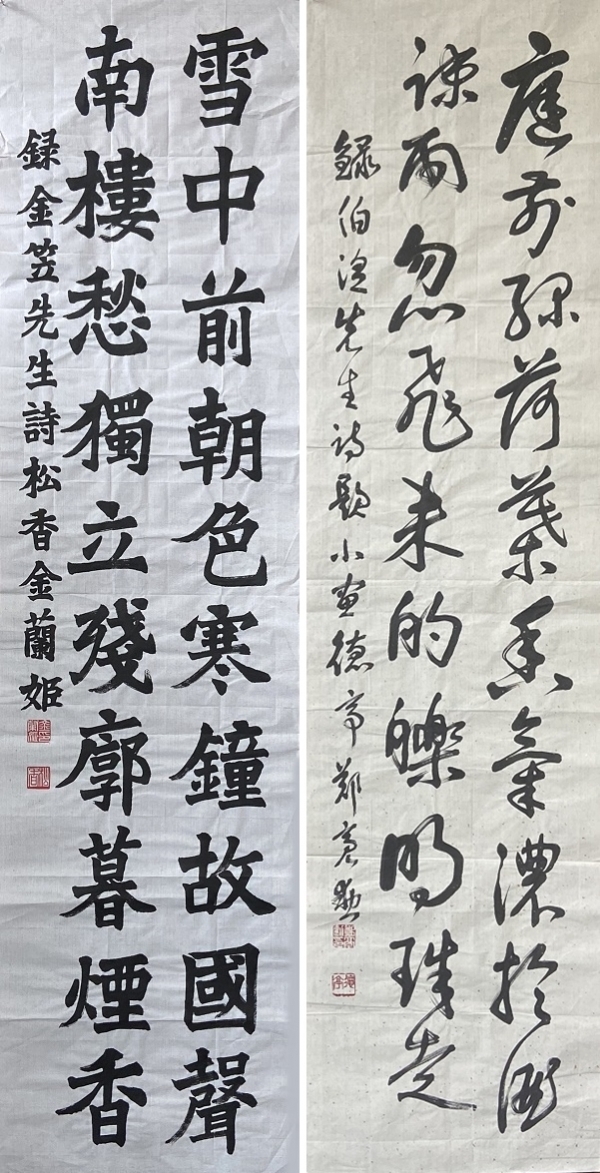 庭前綠荷葉香氣濃於酒
疎雨忽飛來的皪明珠走
録伯先生詩題小畫德亭鄭
雪中前朝色寒鐘故國聲
南樓愁獨立殘廓暮煙香
録金笠先生詩松香金蘭姬